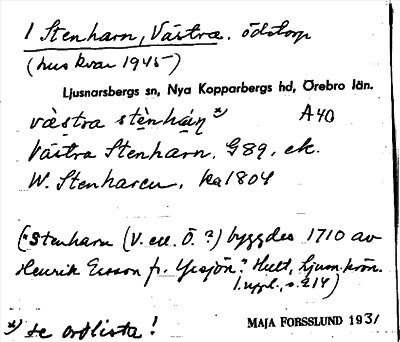 1 Stenharn, Västra. ödstorp
(hus kvar 1945)
Ljusnarsbergs sn, Nya Kopparbergs hd, Örebro län.
vàstra stènháṇ *) A40
Västra Stenharn, G89, ek.
W. Stenharen, ka 1804
(*Stenharn (V. ell. Ö.?) byggdes 1710 av
Henrik Ersson fr. Yxsjön? Hult, Ljusn. krön.
1. uppl., s. 214)
*) se ordlista!
MAJA FORSSLUND 1931